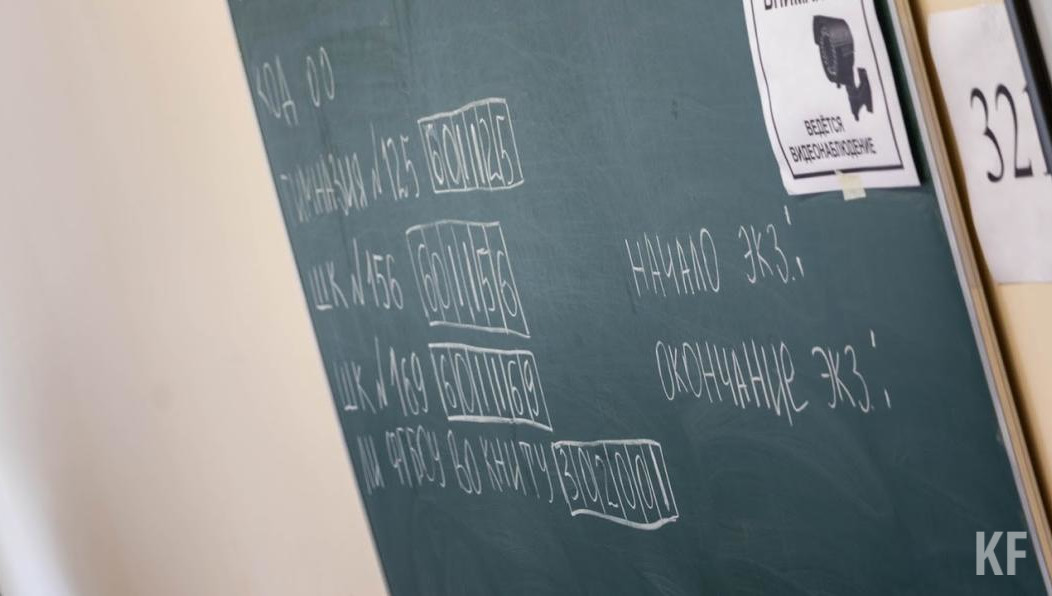 КОД ОО
ГИМНАЗИЯ №125 601125
ШК №156 601156
ШК №169 601169
ЛИ ФБОУ ВО КНИТУ 302001
НАЧАЛО ЭКЗ.:
ОКОНЧАНИЕ ЭКЗ.:
ВЕДЁТСЯ
ВИДЕОНАБЛЮДЕНИЕ
321
KF